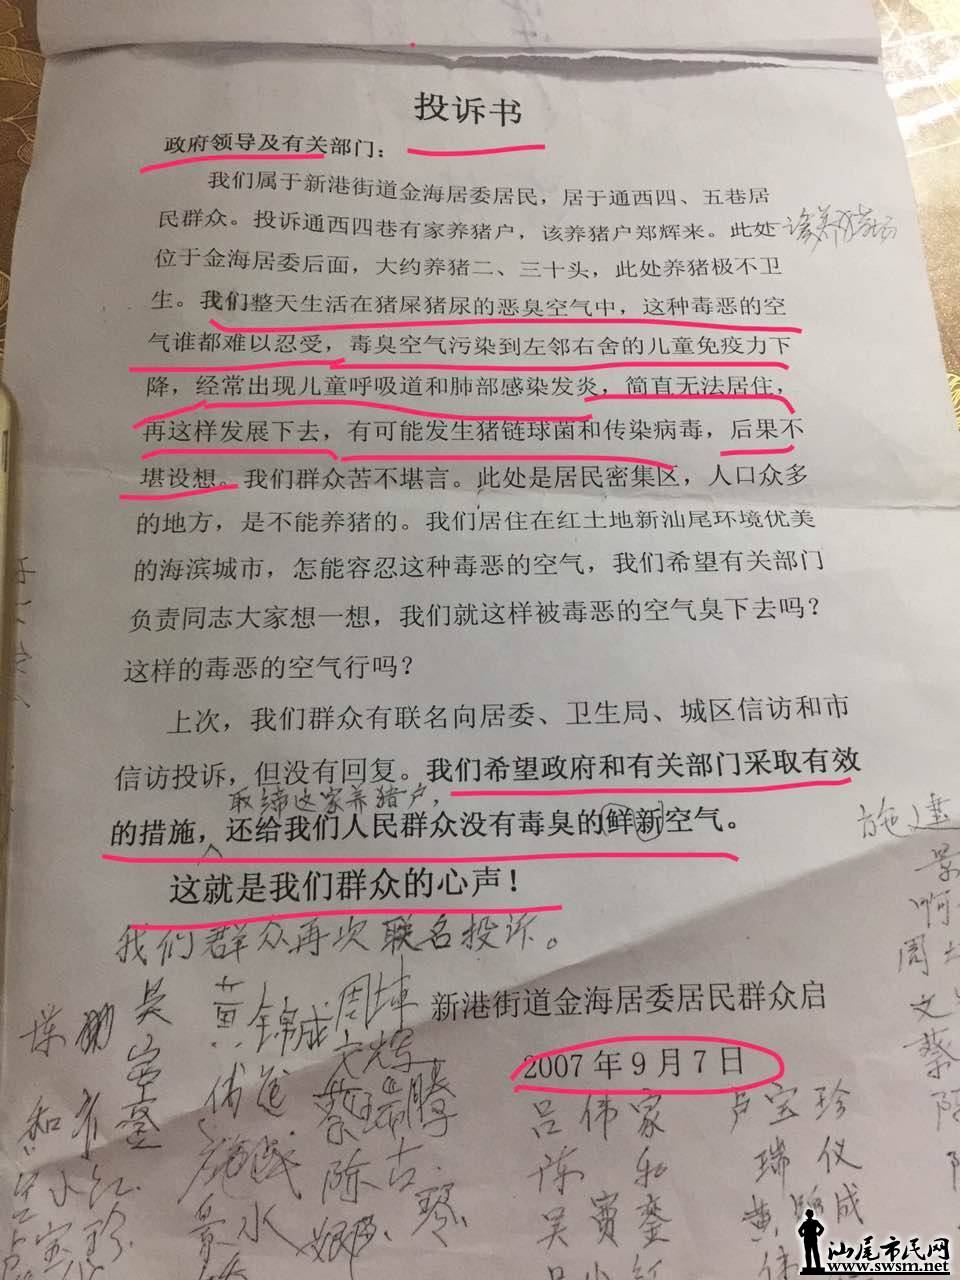 投诉书
政府领导及有关部门：
我们属于新港街道金海居委居民，居于通西四、五巷居
民群众。投诉通西四巷有家养猪户，该养猪户郑辉来。此处
位于金海居委后面，大约养猪二、三十头，此处养猪极不卫
生。我们整天生活在猪屎猪尿的恶臭空气中，这种毒恶的空
气谁都难以忍受，毒臭空气污染到左邻右舍的儿童免疫力下
降，经常出现儿童呼吸道和肺部感染发炎，简直无法居住，
再这样发展下去，有可能发生猪链球菌和传染病毒，后果不
堪设想。我们群众苦不堪言。此处是居民密集区，人口众多
的地方，是不能养猪的。我们居住在红土地新汕尾环境优美
的海滨城市，怎能容忍这种毒恶的空气，我们希望有关部门
负责同志大家想一想，我们就这样被毒恶的空气臭下去吗？
这样的毒恶的空气行吗？
上次，我们群众有联名向居委、卫生局、城区信访和市
信访投诉，但没有回复。我们希望政府和有关部门采取有效
取缔这家养猪户，
的措施，还给我们人民群众没有毒臭的鲜新空气。
这就是我们群众的心声！
我们群众再次联名投诉。
新港街道金海居委居民群众启
2007年9月7日
黄锦成
周坤
文辉
蔡瑞腾
陈古
吕伟家
卢宝珍
陈和
瑞仪
景水
施建
汕尾市民网
www.swsm.net